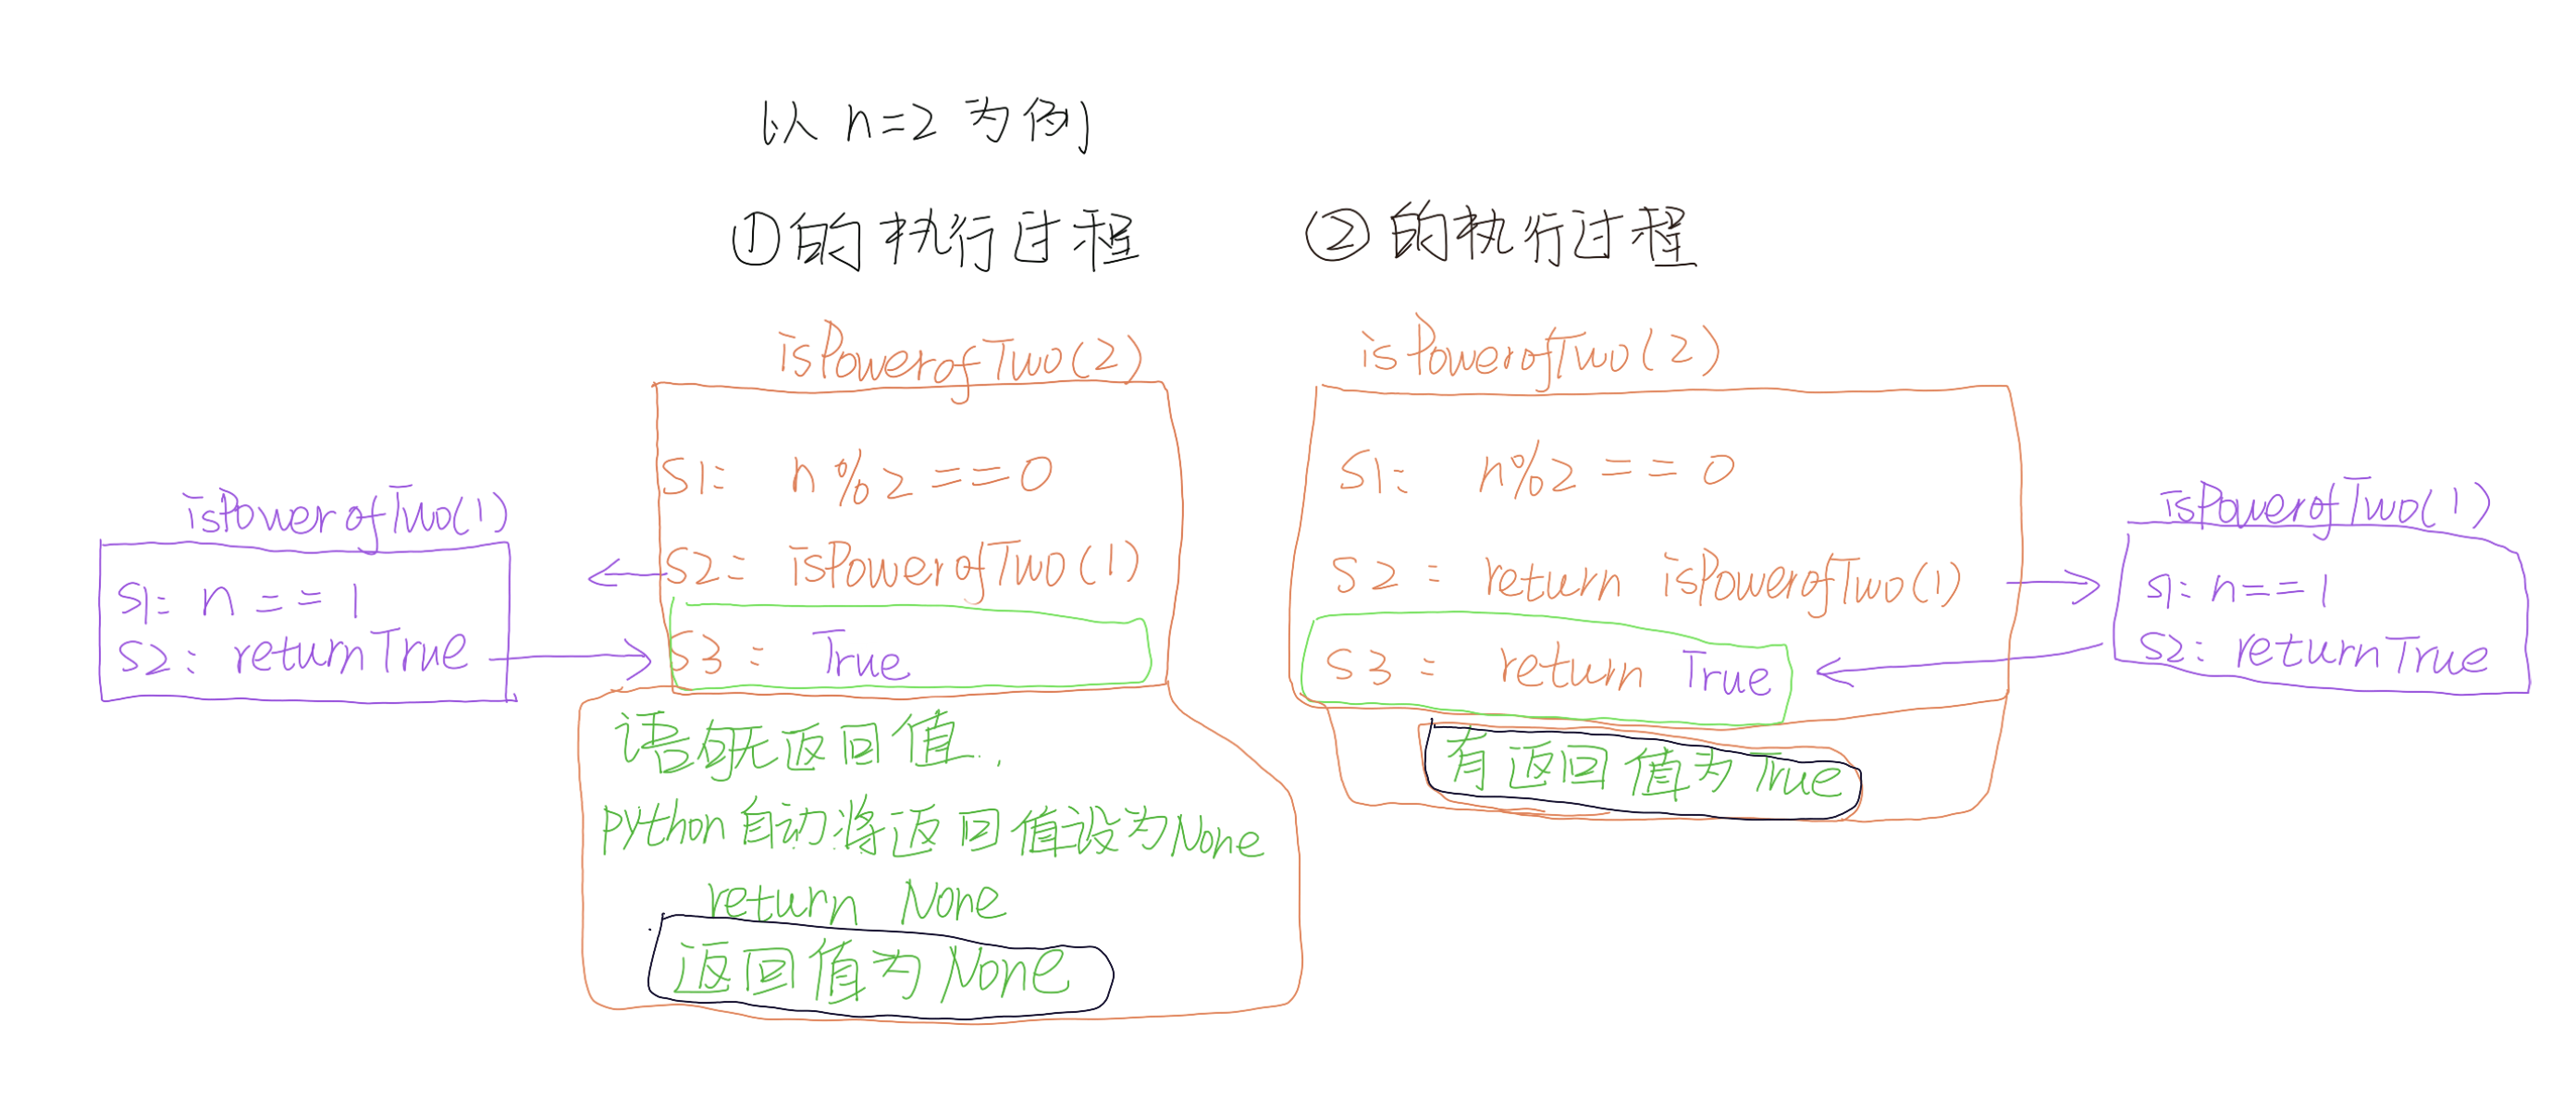 以 n=2 为例
①的执行过程
②的执行过程
isPowerofTwo(2)
S1: n%2==0
S2: isPowerofTwo(1)
S3: True
isPowerofTwo(1)
S1: n==1
S2: returnTrue
语句无返回值.
python自动将返回值设为None
return None
返回值为None
isPowerofTwo(2)
S1: n%2==0
S2: return isPowerofTwo(1)
S3: return True
有返回值为True
isPowerofTwo(1)
S1: n==1
S2: returnTrue